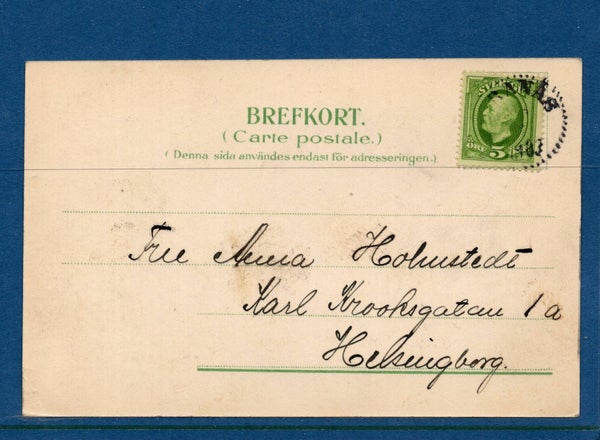 BREFKORT.
(Carte postale.)
(Denna sida användes endast för adresseringen.)
ÖRE 5
Fru Anna Holmstedt
Karl Krooksgatan 1a
Helsingborg.